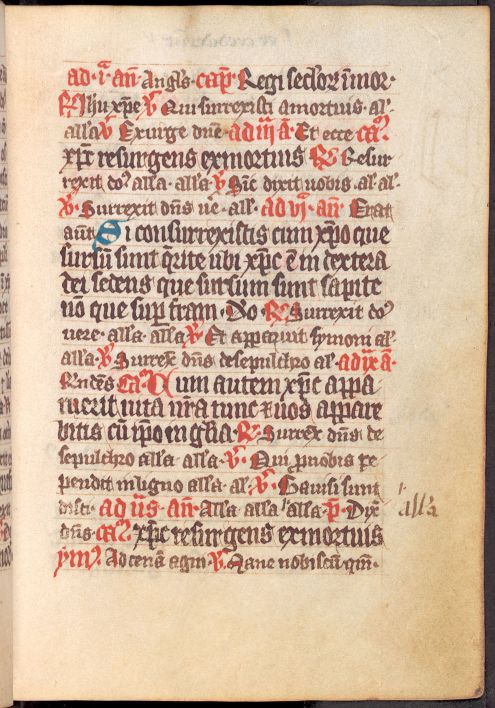 ad · i · an̄ · Angl̄s · cap̄ Regi sec̄loꝝ īmor ·
℟ Ihu xp̄e ℣ Qui surrexisti a mortuis · al̄ ·
all̄a ℣ Exurge dn̄e · ad iij a̅ · Et ecce ca̅
xp̄c resurgens ex mortuis ℟ Resur
rexit do᷒ all̄a · all̄a ℣ Sic̄ dixit uobis · al̄ al̄ ·
℣ · Surrexit dn̄s ue̅ · all̄ · ad vj · an̄ · Erat
aūt Si consurrexistis cum xp̄o que
sursū sunt q̄rite ubi xp̄c ē in dextera
dei sedens que sursum sunt sapite
nō que sup̄ terram · Do ℟ Surrexit do᷒
uere · all̄a · all̄a ℣ · Et apparuit symoni al̄
all̄a · ℣ Surrex̄ dn̄s de sepulchro al̄ · ad ix a̅ ·
Rn̄dēs Ca̅ Cum autem xp̄c appa
ruerit uita nr̄a tunc ⁊ uos appare
bitis cū ip̄o in gl̄ia ℟ · Surrex̄ dn̄s de
sepulchro all̄a · all̄a · ℣ · Qui p̄ nobis pe
pendit in ligno all̄a · al̄ ℣ · Gauisi sunt
disci · ad ij̄s · an̄ · All̄a all̄a all̄a · p̄ · Dix̄ all̄a
dn̄s · ca̅ · xp̄c resurgens ex mortuis
ym̄ · Ad cenā agni ℣ · Mane nobiscū qm̄ ·